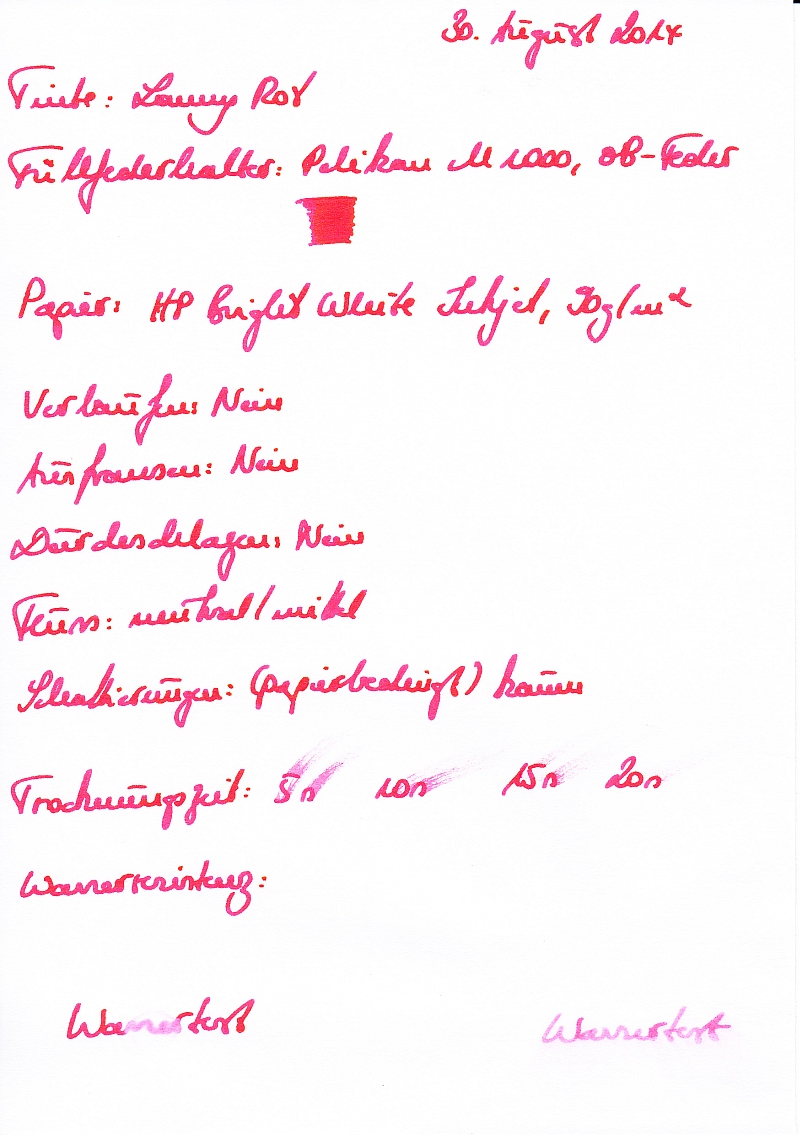 30. August 2014
Tinte: Lamy Rot
Füllfederhalter: Pelikan M 1000, OB-Feder
Papier: HP Bright White Inkjet, 90g/m²
Verlaufen: Nein
Ausfransen: Nein
Durchschlagen: Nein
Fluss: neutral/mittel
Schattierungen: (papierbedingt) kaum
Trocknungszeit: 5s 10s 15s 20s
Wasserresistenz:
Wassertest Wassertest